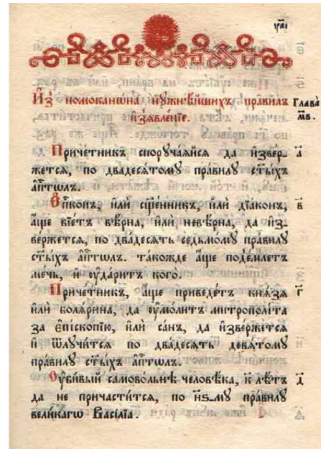 Из номоканѡна нꙋжнѣйшихъ правилъ
изъѧвленїе.
Глава
Причетникъ споручаѧйсѧ да извер-
жетсѧ, по двадесѧтомꙋ правилꙋ ст҃ыхъ
а҃
апⷭ҇тѡлъ.
Еп҃копъ, или сщ҃енникъ, или дїаконъ,
в҃
аще бїетъ вѣрна, или невѣрна, да из-
вержетсѧ, по двадесѧть седьмомꙋ правилꙋ
ст҃ыхъ апⷭ҇тѡлъ. такожде аще подемлетъ
мечь, и ᲂударитъ кого.
Причетникъ, аще приведетъ кнѧзѧ
г҃
или болѧрина, да ᲂумолитъ митрополита
за епископїю, или санъ, да извержетсѧ
и ѿлꙋчитсѧ по двадесѧть девѧтомꙋ
правилꙋ ст҃ыхъ апⷭ҇тѡлъ.
Оубивый самовольнѣ человѣка, к҃ лѣтъ
д҃
да не причаститсѧ, по н҃ѕ_мꙋ правилꙋ
великагѡ Василїа.